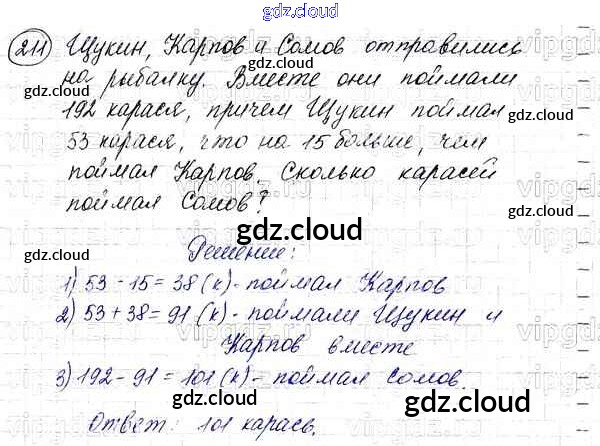 gdz.cloud
211 Щукин, Карпов и Сомов отправились
на рыбалку. Вместе они поймали
gdz.cloud gdz.cloud
192 карася, причем Щукин поймал
gdz.cloud
53 карася, что на 15 больше, чем
gdz.cloud
поймал Карпов. Сколько карасей
поймал Сомов?
gdz.cloud
gdz.cloud gdz.cloud
Решение:
1) 53 - 15 = 38 (к) - поймал Карпов
2) 53 + 38 = 91 (к) - поймали Щукин и
Карпов вместе
gdz.cloud gdz.cloud
3) 192 - 91 = 101 (к) - поймал Сомов.
gdz.cloud
Ответ: 101 карась.
gdz.cloud